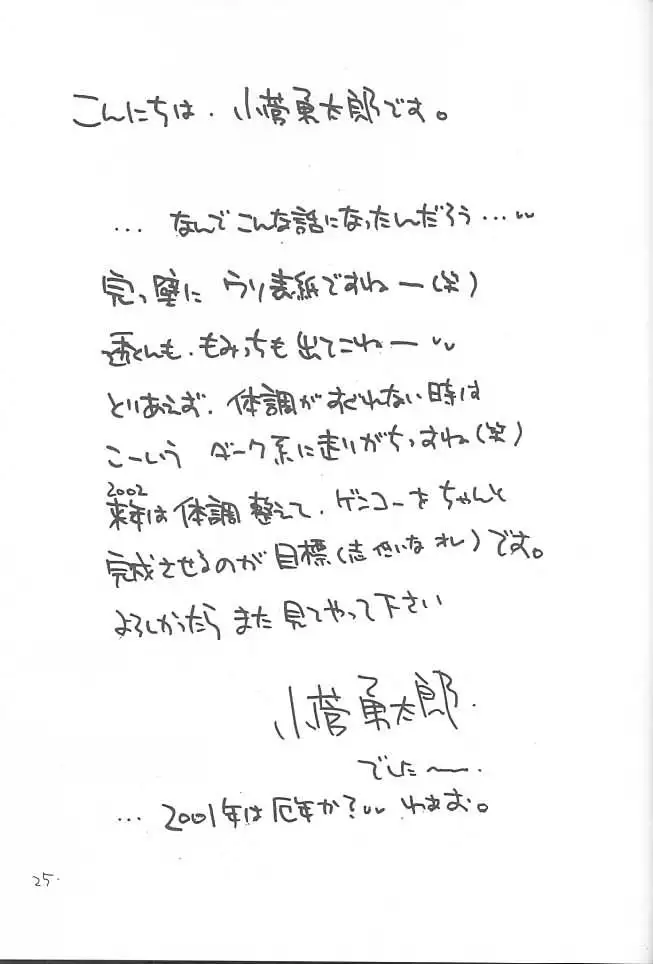 こんにちは. 小菅勇太郎です。
... なんでこんな話になったんだろう...
完っ璧に ウソ表紙ですねー(笑)
透くんも、もみっちも出てこねー
とりあえず、体調がすぐれない時は
こーいう ダーク系に走りがちっすね(笑)
2002
来年は体調整えて、ゲンコーをちゃんと
完成させるのが目標(志低いなオレ)です。
よろしかったら また見てやって下さい
小菅勇太郎.
でした〜.
... 2001年は厄年か? わぁお。
25.